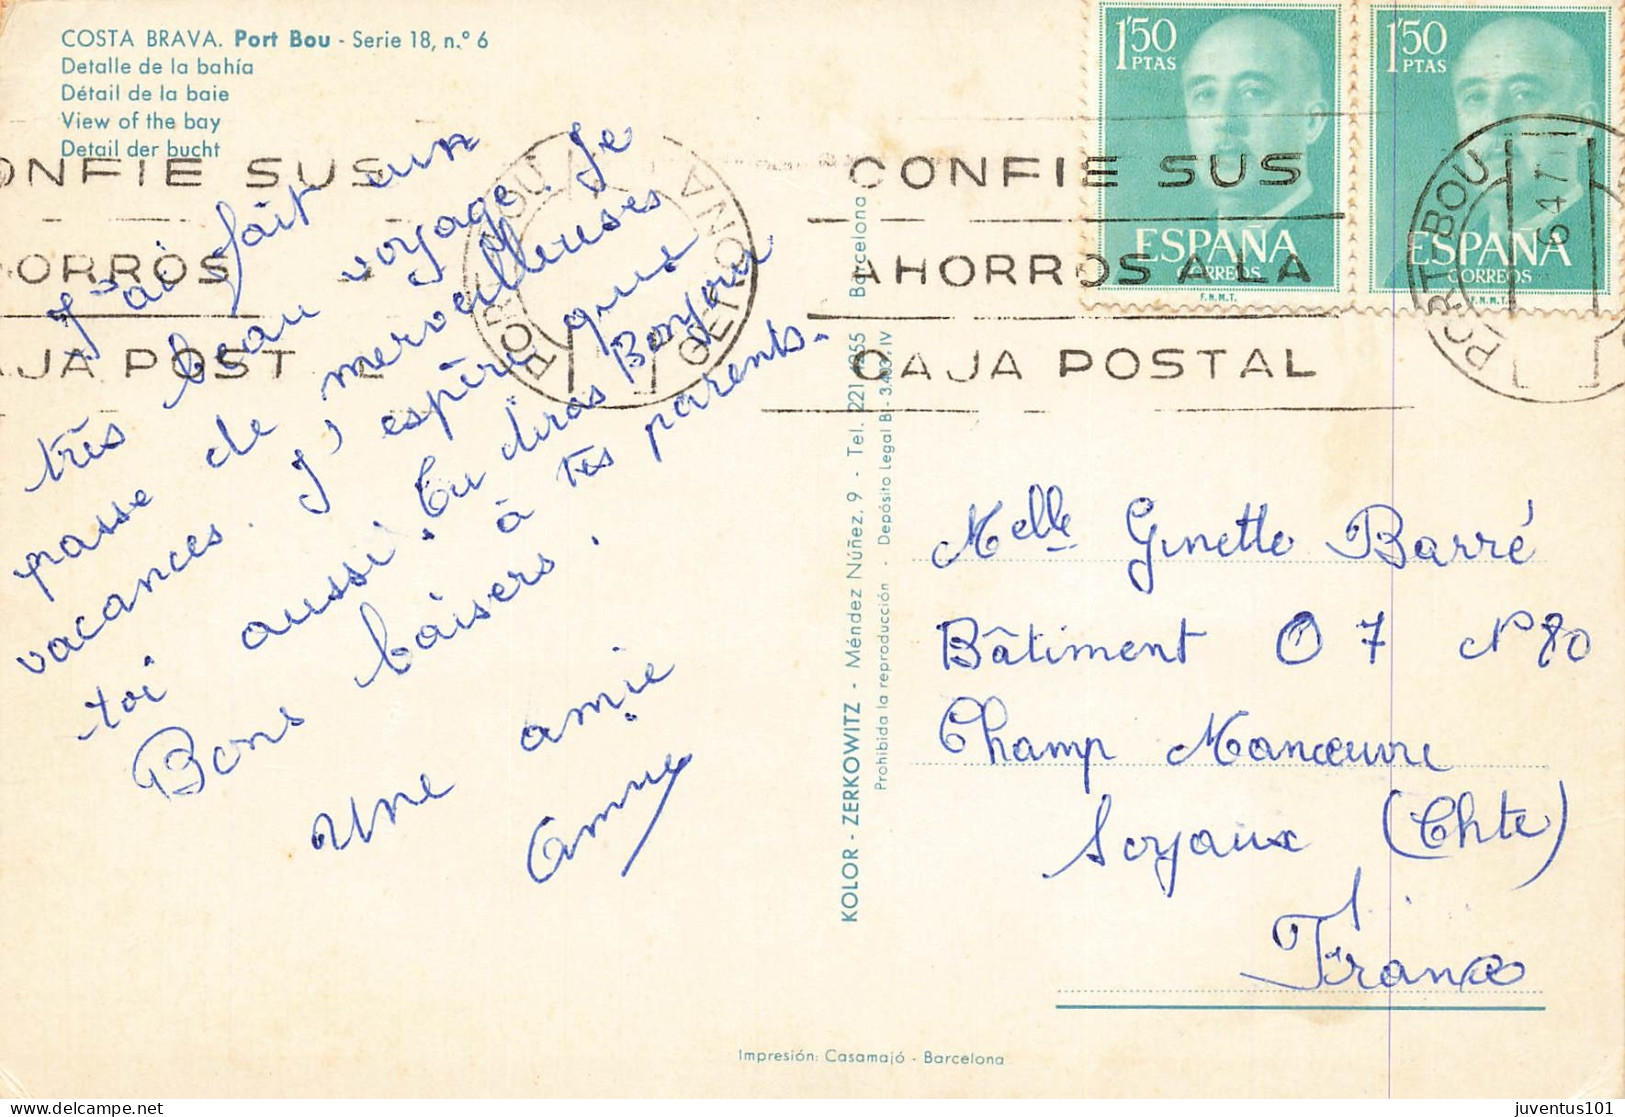 COSTA BRAVA. Port Bou - Serie 18, n.º 6
Detalle de la bahía
Détail de la baie
View of the bay
Detail der bucht
ONFIE SUS
ORROS
AJA POST
PORT BOU
GERONA
CONFIE SUS
AHORROS A LA
CAJA POSTAL
PORT-BOU
1'50
PTAS
ESPAÑA
CORREOS
F.N.M.T.
1'50
PTAS
ESPAÑA
CORREOS
F.N.M.T.
J'ai fait un
très beau voyage. Je
passe de merveilleuses
vacances. J'espère que
toi aussi. Tu diras Bonjour
à tes parents.
Bons baisers.
Une amie
Anne
KOLOR - ZERKOWITZ - Méndez Núñez, 9 - Tel. 221 4955 Barcelona
Prohibida la reproducción - Depósito Legal B - IV
Melle Ginette Barré
Bâtiment O 7 N° 80
Champ Manœuvre
Soyaux (Chte)
France
Impresión: Casamajó - Barcelona
juventus101